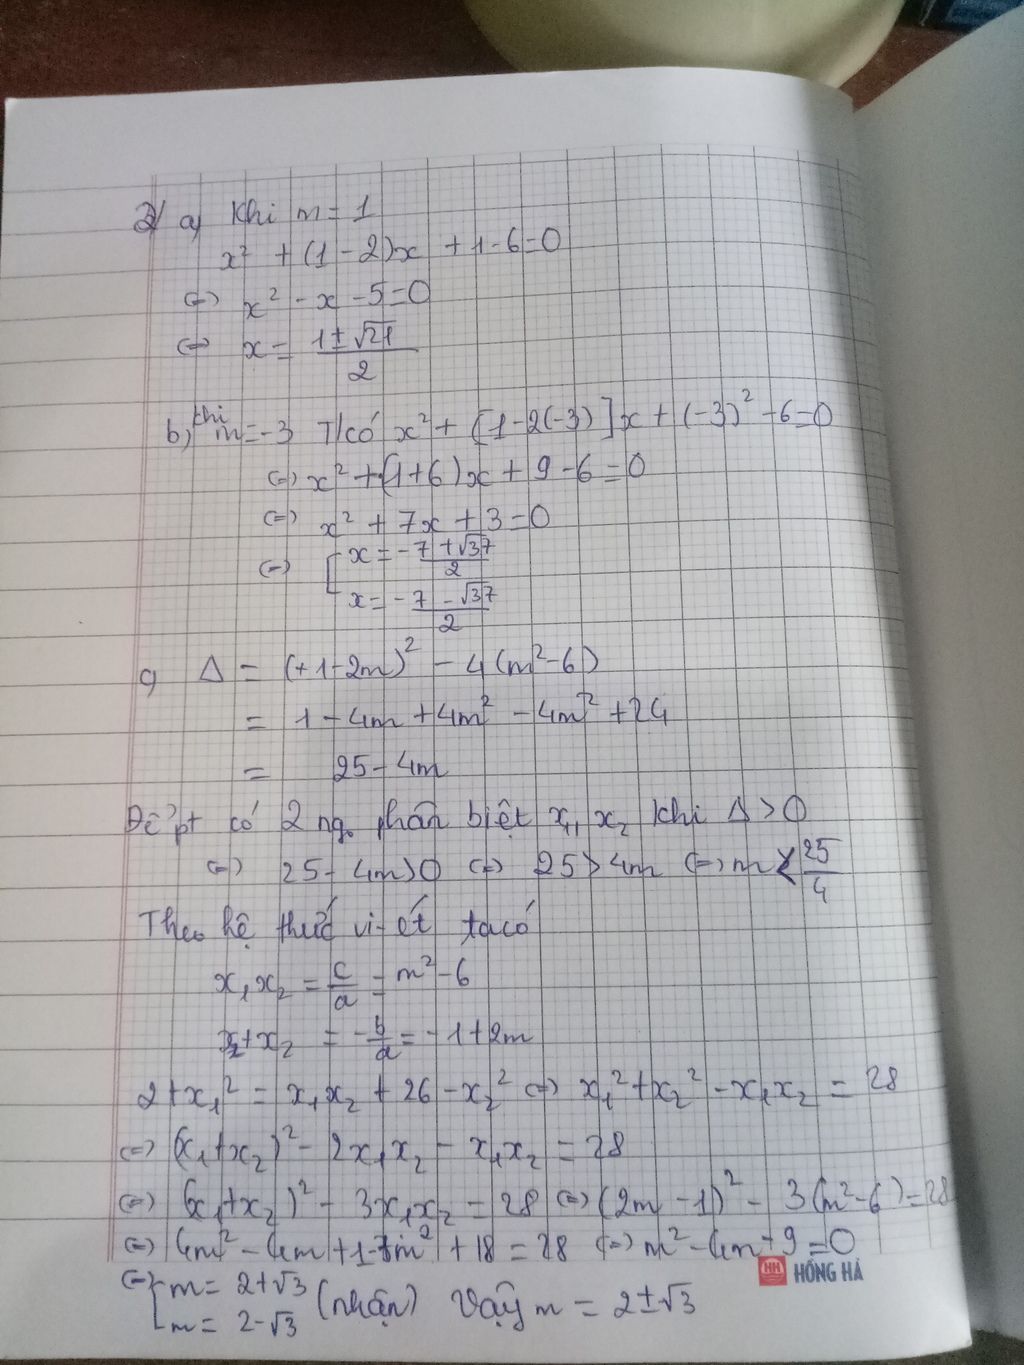 2/ a) Khi m = 1
x² + (1 - 2)x + 1 - 6 = 0
<=> x² - x - 5 = 0
<=> x = (1 ± √21)/2
b, khi m = -3 T/có x² + [1 - 2(-3)]x + (-3)² - 6 = 0
<=> x² + (1+6)x + 9 - 6 = 0
<=> x² + 7x + 3 = 0
<=> [ x = (-7 + √37)/2
x = (-7 - √37)/2
c) Δ = (+1 - 2m)² - 4(m² - 6)
= 1 - 4m + 4m² - 4m² + 24
= 25 - 4m
Để pt có 2 ngo phân biệt x₁, x₂ khi Δ > 0
<=> 25 - 4m > 0 <=> 25 > 4m <=> m < 25/4
Theo hệ thức vi-ét ta có
x₁x₂ = c/a = m² - 6
x₁ + x₂ = -b/a = -1 + 2m
2 + x₁² = x₁x₂ + 26 - x₂² <=> x₁² + x₂² - x₁x₂ = 28
<=> (x₁ + x₂)² - 2x₁x₂ - x₁x₂ = 28
<=> (x₁ + x₂)² - 3x₁x₂ = 28 <=> (2m - 1)² - 3(m² - 6) = 28
<=> 4m² - 4m + 1 - 3m² + 18 = 28 <=> m² - 4m + 9 = 0
HH HỒNG HÀ
<=> [ m = 2 + √3
m = 2 - √3 (nhận) Vậy m = 2 ± √3